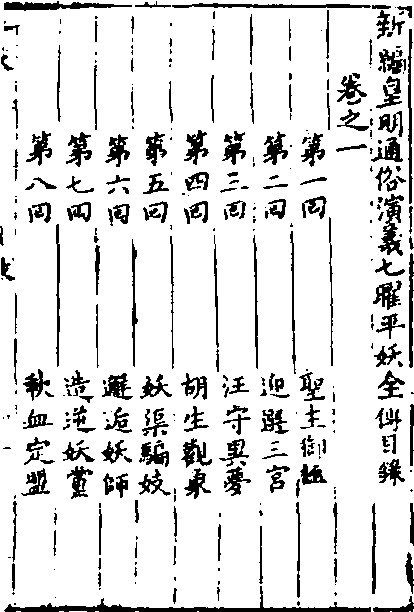 新編皇明通俗演義七曜平妖全傳目錄
卷之一
第一回 聖主御極
第二回 迎選三宮
第三回 汪守異夢
第四回 胡生觀象
第五回 妖渠騙妓
第六回 邂逅妖師
第七回 造逆妖黨
第八回 歃血定盟